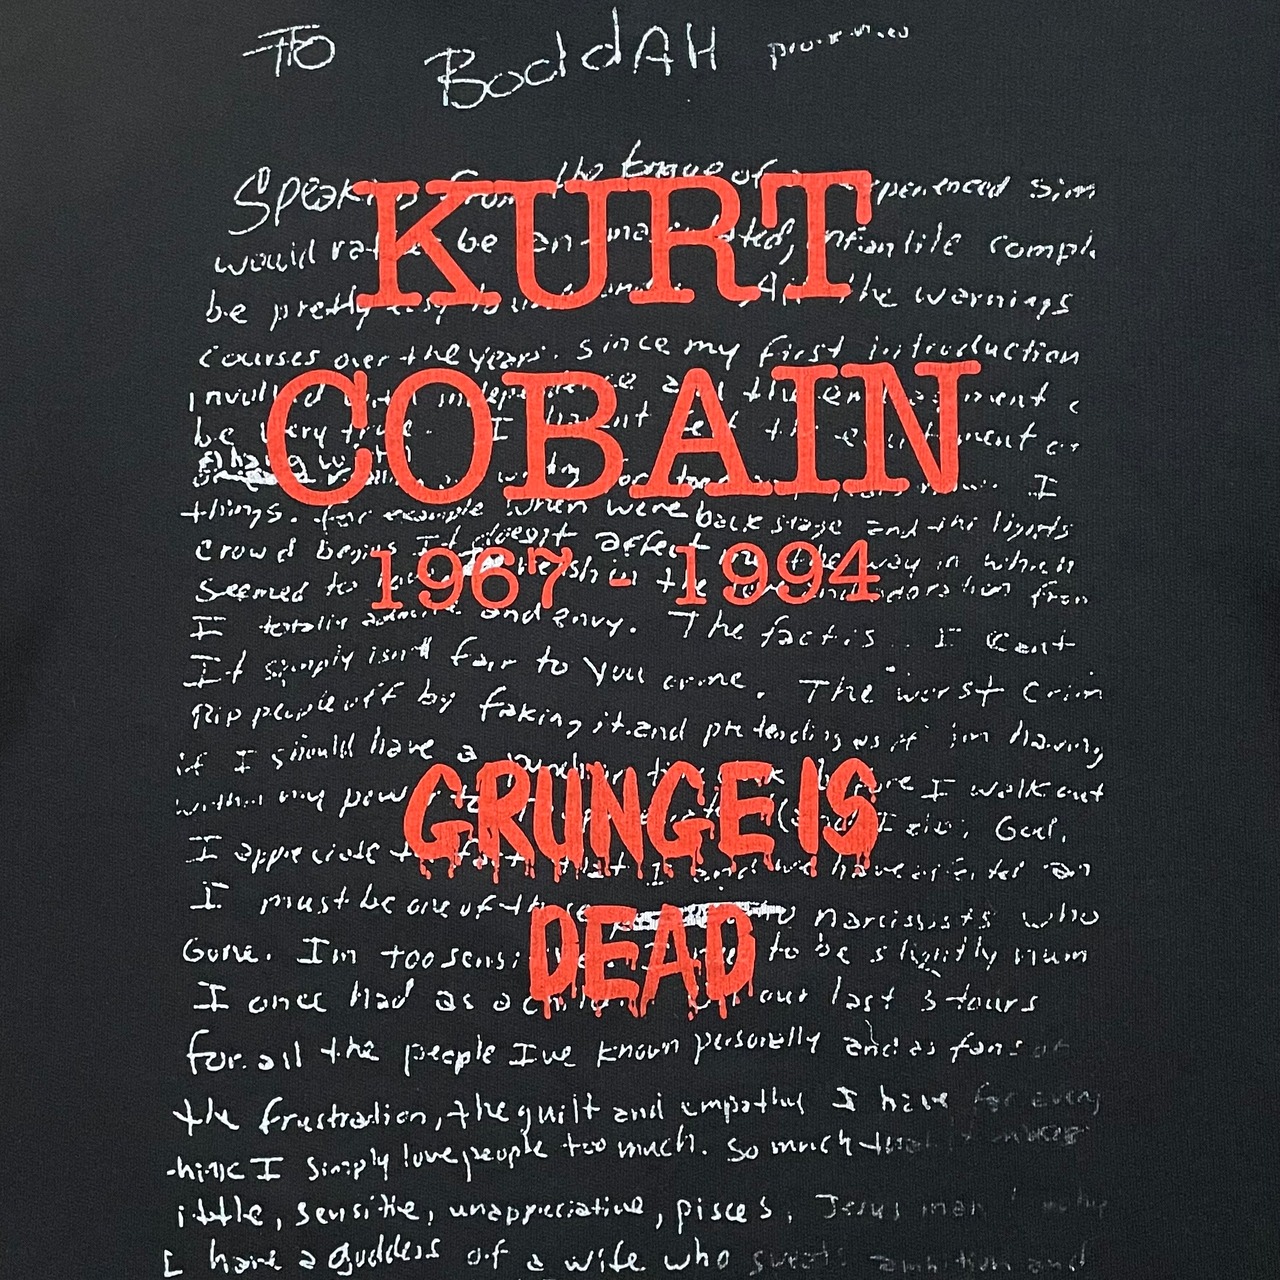 To BoddAH
Speaking from the tongue of experienced sim
would rather be an emasculated, infantile compl
KURT
be pretty easy to understand. All the warnings
courses over the years. since my first introduction
COBAIN
involved with independence and the embracement
be very true. I havent felt the excitement
I
things. for example when were back stage and the lights
crowd begins It doesnt affect me the way in which
1967 - 1994
seemed to love the love and adoration from
I totally admire and envy. The fact is.. I cant
It simply isnt fair to you or me. The worst crim
Rip people off by faking it. and pretending as if im having
if I should have a punch in time clock before I walk out
GRUNGE IS
within my power to appreciate (and I do, God,
I appreciate the fact that I and we have
I must be one of those narcissists who
DEAD
Gone. Im too sensitive. I need to be slightly num
I once had as a child. our last 3 tours
for. all the people Ive known personally and as fans
the frustration, the guilt and empathy I have for every
think I simply love people too much. so much that it makes
ittle, sensitive, unappreciative, pisces, Jesus man
I have a goddess of a wife who sweats ambition and